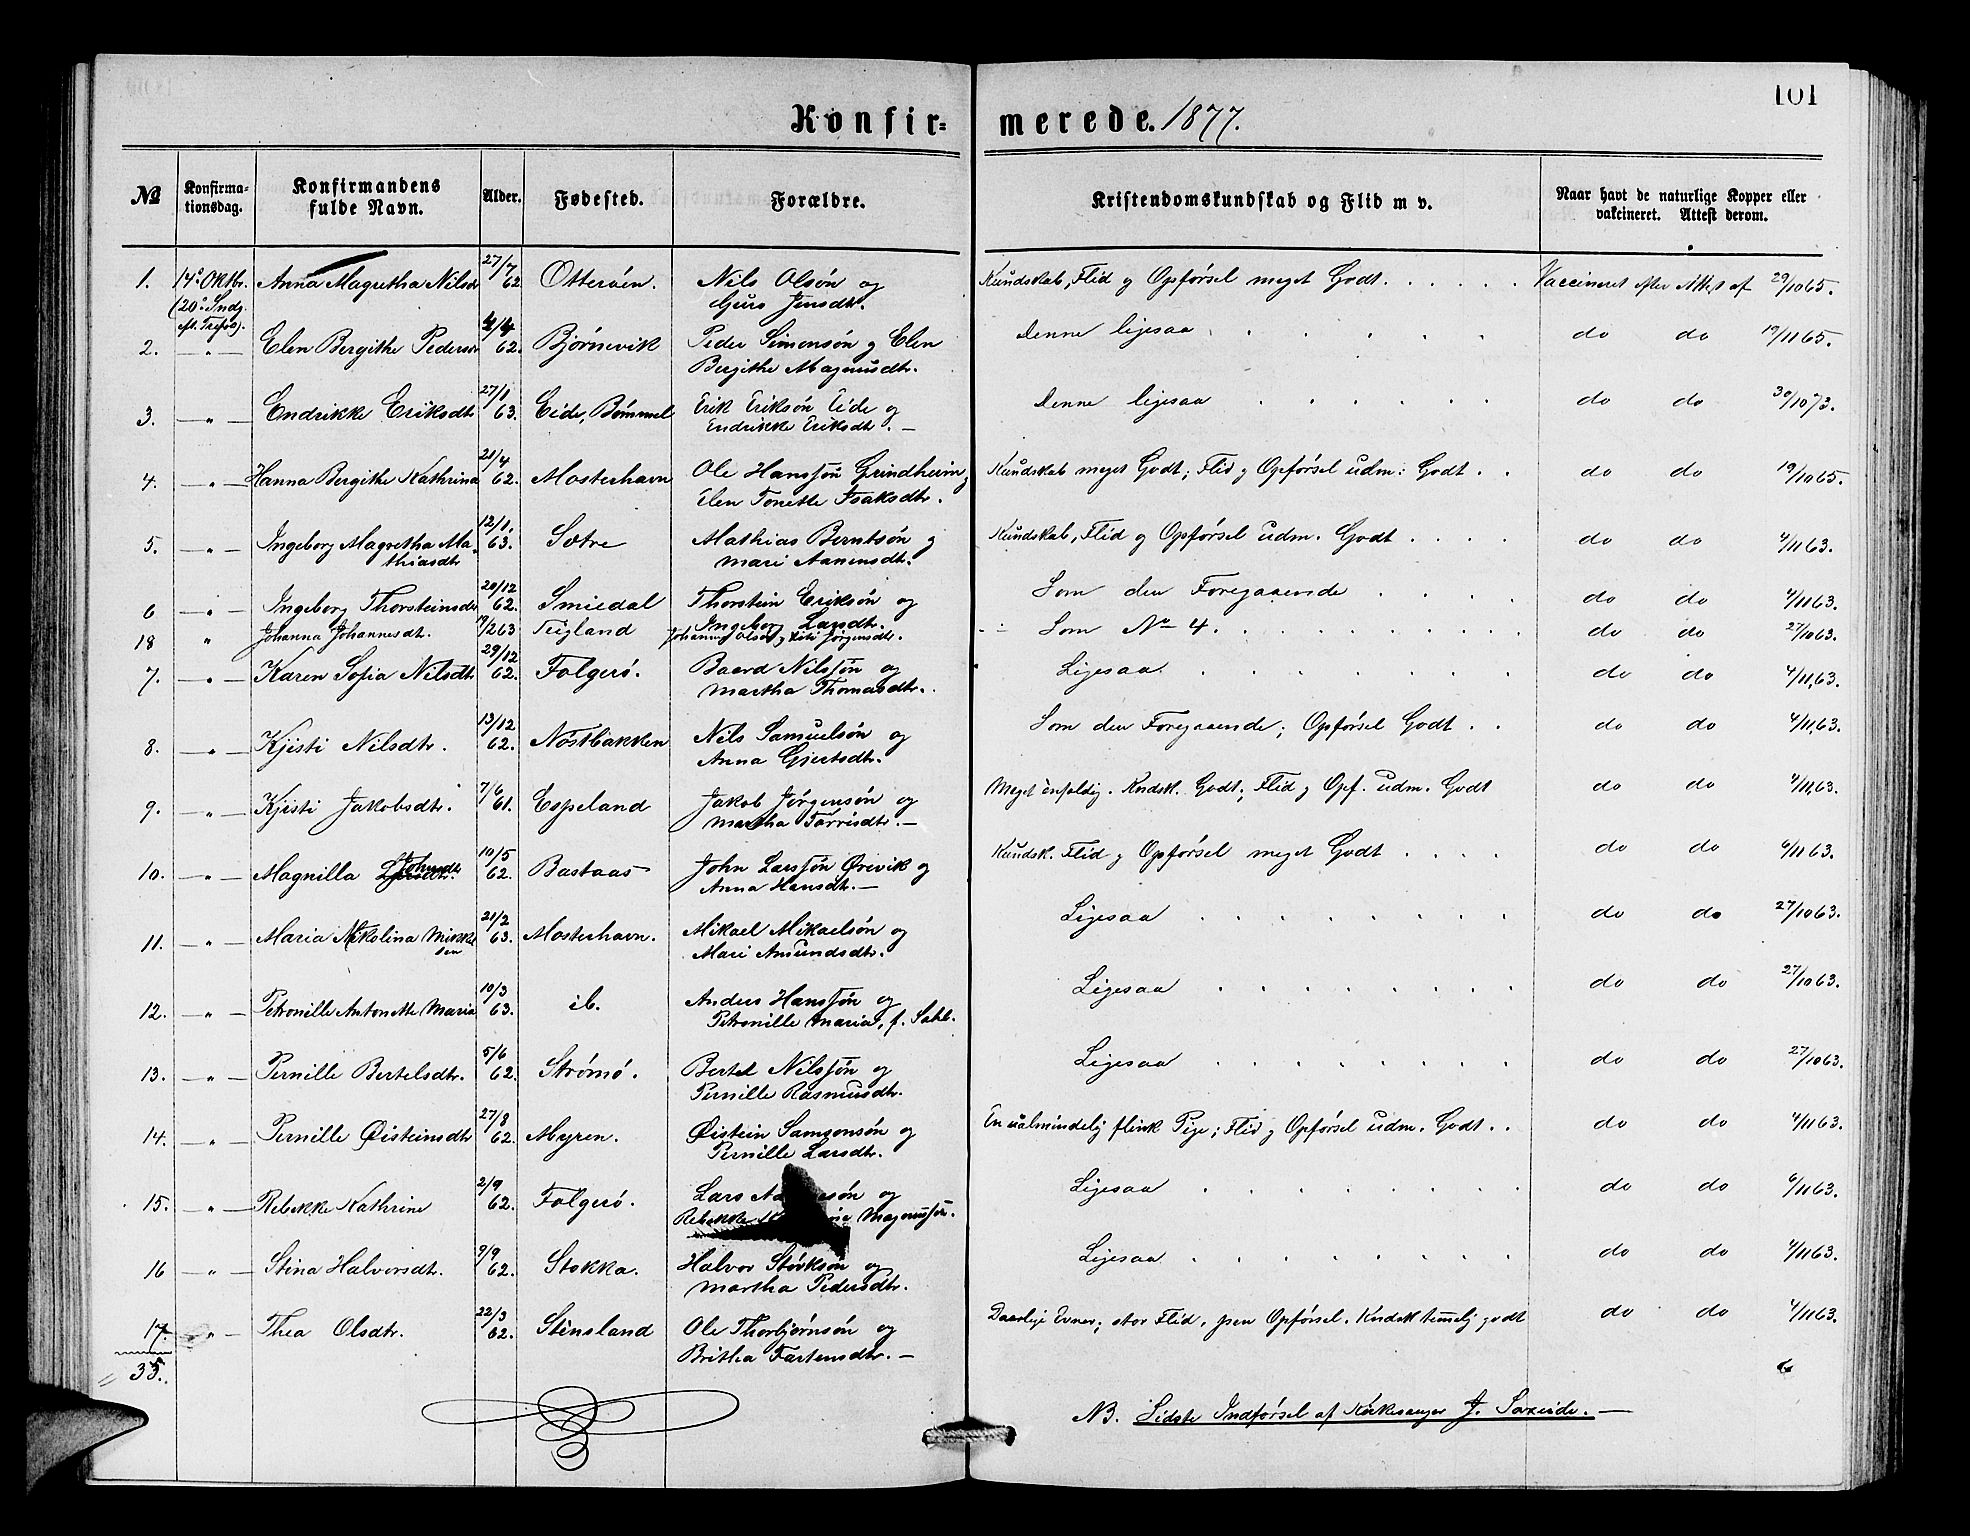 101
Konfirmerede. 1877.
№ Konfirmationsdag. Konfirmandens fulde Navn. Alder. Fødested. Forældre. Kristendomskundskab og Flid m v. Naar havt de naturlige Kopper eller vakcineret. Attest derom.
1. 14de Oktbr. (20de Sndg. eft. Trefol). Anna Magretha Nilsdr 27/7 62 Otterøen. Nils Olsøn og Guro Jensdtr. Kundskab, Flid og Opførsel meget Godt. Vaccineret efter Attest af 29/10 65.
2. - " - Elen Bergithe Pedersdr 4/4 62. Bjørnevik Peder Simonsøn og Elen Bergithe Magnusdtr. Denne ligesaa do do 19/11 65.
3. - " - Endrikke Eriksdtr 27/1 63. Eide, Bømmel Erik Eriksøn Eide og Endrikke Eriksdtr. - Denne ligesaa do do 30/10 73.
4. - " - Hanna Bergithe Kathrina 21/4 62. Mosterhavn Ole Hanssøn Grindheim og Elen Tonette Isaksdtr. Kundskab meget Godt; Flid og Opførsel udm: Godt do do 19/10 65.
5. - " - Ingeborg Magretha Mathiasdtr 12/1. 63. Sætre Mathias Berntsøn og Mari Aanensdtr. Kundskab, Flid og Opførsel udm. Godt do do 4/11 63.
6 - " - Ingeborg Thorsteinsdr 20/12 62. Smiedal Thorstein Eriksøn og Ingeborg Larsdtr. Som den Foregaaende do do 4/11 63.
18 " Johanna Johannesdt. 17/2 63 Teigland Johannes Olsøn og Kisti Jørgensdtr. Som No 4. do do 27/10 63.
7. - " - Karen Sofia Nilsdtr 29/12 62. Folgerø. Baard Nilssøn og Martha Thomasdtr. Ligesaa do do 4/11, 63.
8. - " - Kjisti Nilsdtr. 13/12 62. Nøstbakken Nils Samuelsøn og Anna Gjertsdtr. Som den Foregaaende; Opførsel Godt do do 4/11, 63.
9. - " - Kjisti Jakobsdtr. 7/6 61. Espeland Jakob Jørgensøn og Martha Torrisdtr. - Meget enfoldig. Kndsk. Godt; Flid og Opf. udm. Godt do do 4/11, 63.
10. - " - Magnilla Johnsdtr 10/5 62. Bastaas John Larssøn Ørevik og Anna Hansdtr. - Kundsk. Flid og Opførsel meget Godt do do 6/11 63.
11. - " - Maria Nikolina Mikkelsen 21/2 63. Mosterhavn. Mikael Mikaelsøn og Mari Amundsdtr. Ligesaa do do 27/10 63.
12. - " - Petronille Antonette Maria 10/3 63. ib. Anders Hanssøn og Petronille Maria, f. Sahl. Ligesaa do do 27/10 63.
13. - " - Pernille Bertelsdtr. 5/6 62. Strømø. Bertel Nilssøn og Pernille Rasmusdtr. Ligesaa do do 27/10 63.
14. - " - Pernille Øisteinsdtr 27/8 62. Myren. Øistein Samsonsøn og Pernille Larsdtr. En ualmindelig flink Pige; Flid og Opførsel udm. Godt do do 4/11 63.
15. - " - Rebekke Kathrine 2/9 62. Folgerø. Lars og Rebekke Magnussøn. Ligesaa do do 6/11 63.
16 - " - Stina Halvorsdtr. 9/9 62. Stokka. Halvor Størksøn og Martha Pedersdtr. Ligesaa do do 4/11 63.
17. " - Thea Olsdtr. 22/3 62. Stensland Ole Thorbjørnsøn og Britha Tortensdtr. - Daarlige Evner; stor Flid, pen Opførsel. Kndsk temelig godt do do 4/11 63.
= 35.
NB. Sidste Indførsel af Kirkesanger J. Søreide. -